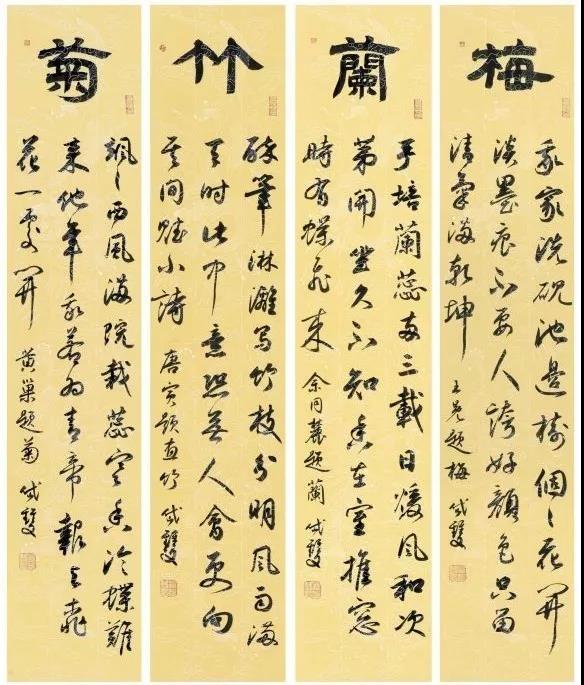 梅
我家洗硯池邊樹個々花開
淡墨痕不要人誇好顏色只留
清氣滿乾坤 王冕題梅
蘭
手培蘭蕊兩三載日暖風和次
第開坐久不知香在室推窗
時有蝶飛來 余同麓題蘭
竹
醉筆淋漓寫竹枝分明風雨滿
天時此中意思無人會更向
其間賦小詩 唐寅題畫竹
菊
颯々西風滿院栽蕊寒香冷蝶難
來他年我若為青帝報與桃
花一處開 黃巢題菊